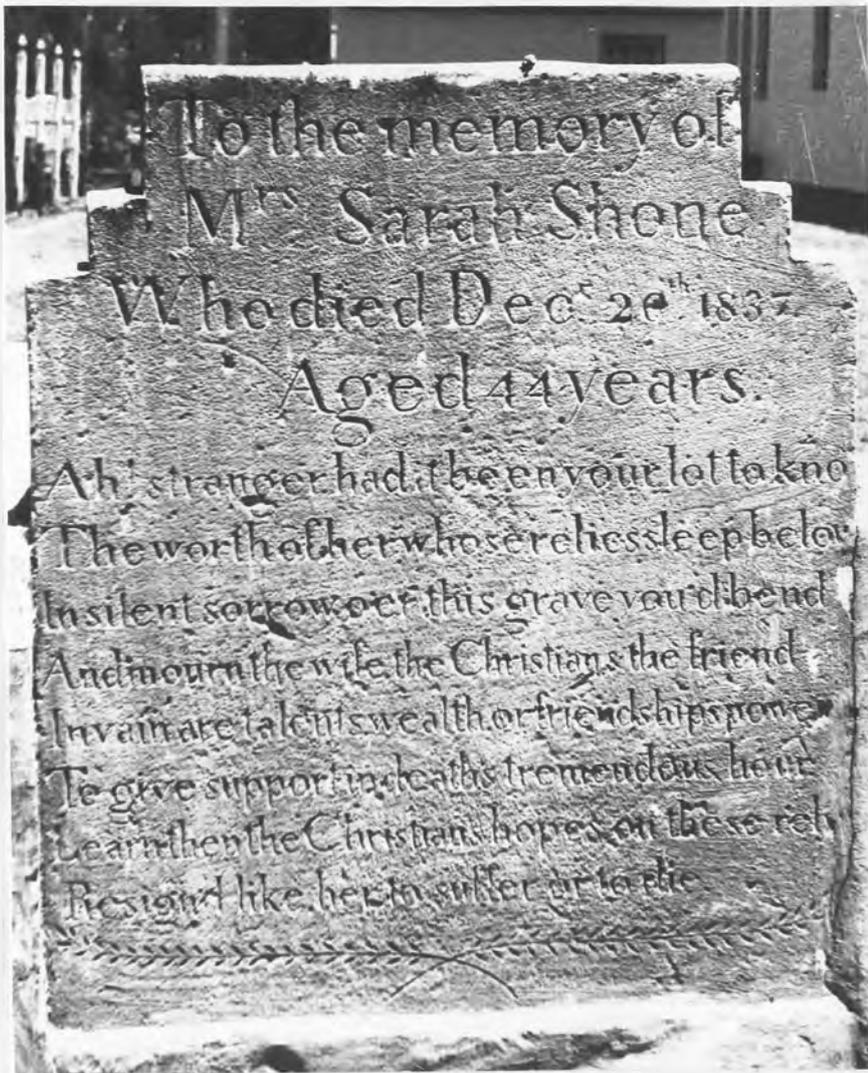 To the memory of
Mrs Sarah Shone
Who died Decr 20th 1837
Aged 44 years.
Ah! stranger had it been your lot to kno
The worth of her whose relics sleep below
In silent sorrow o'er this grave you'd bend
And mourn the wife the Christian & the friend
In vain are talents wealth or friendships power
To give support in deaths tremendous hour
Learn then the Christians hopes on these rely
Resign'd like her to suffer or to die